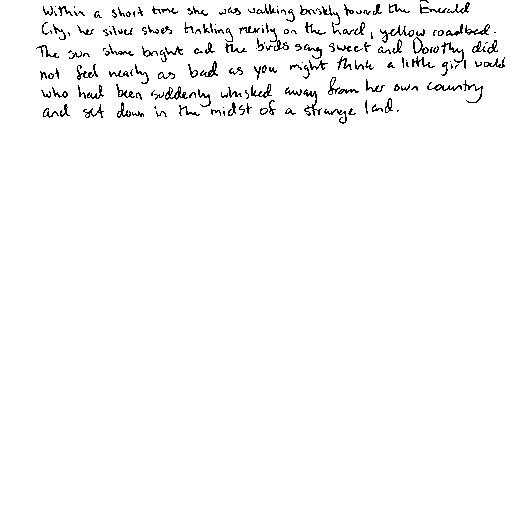 Within a short time she was walking briskly toward the Emerald
City, her silver shoes tinkling merily on the hard, yellow roadbed.
The sun shone bright ad the birds sang sweet and Dorothy did
not feel nearly as bad as you might think a little girl would
who had been suddenly whisked away from her own country
and set down in the midst of a strange land.